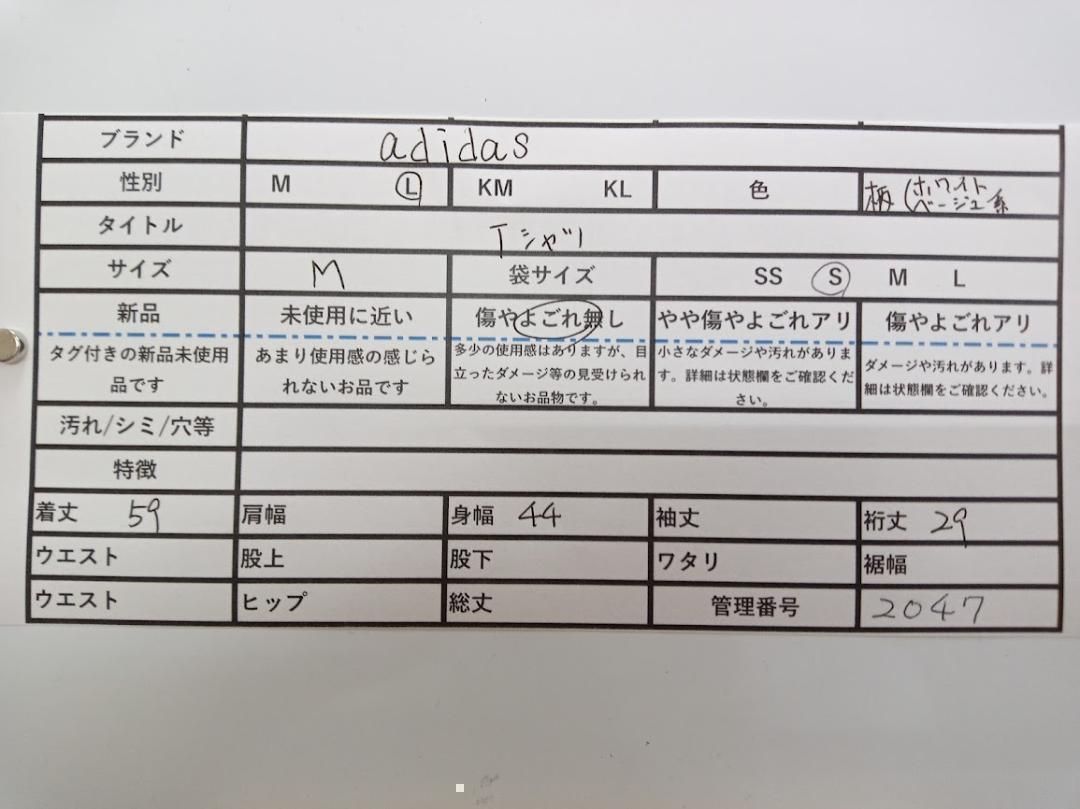 ブランド adidas
性別 M L KM KL 色 柄(ホワイト
ベージュ系
タイトル Tシャツ
サイズ M 袋サイズ SS S M L
新品 未使用に近い 傷やよごれ無し やや傷やよごれアリ 傷やよごれアリ
タグ付きの新品未使用
品です
あまり使用感の感じら
れないお品です
多少の使用感はありますが、目
立ったダメージ等の見受けられ
ないお品物です。
小さなダメージや汚れがありま
す。詳細は状態欄をご確認くだ
さい。
ダメージや汚れがあります。詳
細は状態欄をご確認ください。
汚れ/シミ/穴等
特徴
着丈 59 肩幅 身幅 44 袖丈 裄丈 29
ウエスト 股上 股下 ワタリ 裾幅
ウエスト ヒップ 総丈 管理番号 2047